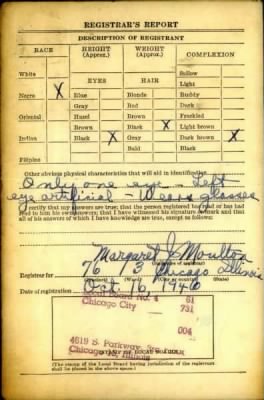 REGISTRAR'S REPORT
DESCRIPTION OF REGISTRANT
RACE HEIGHT (Approx.) WEIGHT (Approx.) COMPLEXION
White Sallow
EYES HAIR Light
Negro X Blue Blonde Ruddy
Gray Red Dark
Oriental Hazel Brown Freckled
Brown Black X Light brown
Indian Black X Gray Dark brown X
Bald Black
Filipino
Other obvious physical characteristics that will aid in identification
Only one eye - Left
eye artificial - Wears glasses
I certify that my answers are true; that the person registered has read or has had
read to him his own answers; that I have witnessed his signature or mark and that
all of his answers of which I have knowledge are true, except as follows:
Margaret J. Moulton
Registrar for 76 13 Chicago Illinois
Local Board No. 61
Chicago City 731
Date of registration Oct. 16, 1946
004
4619 S. Parkway,
Chicago, Illinois
(The stamp of the Local Board having jurisdiction of the registrant
shall be placed in the above space.)